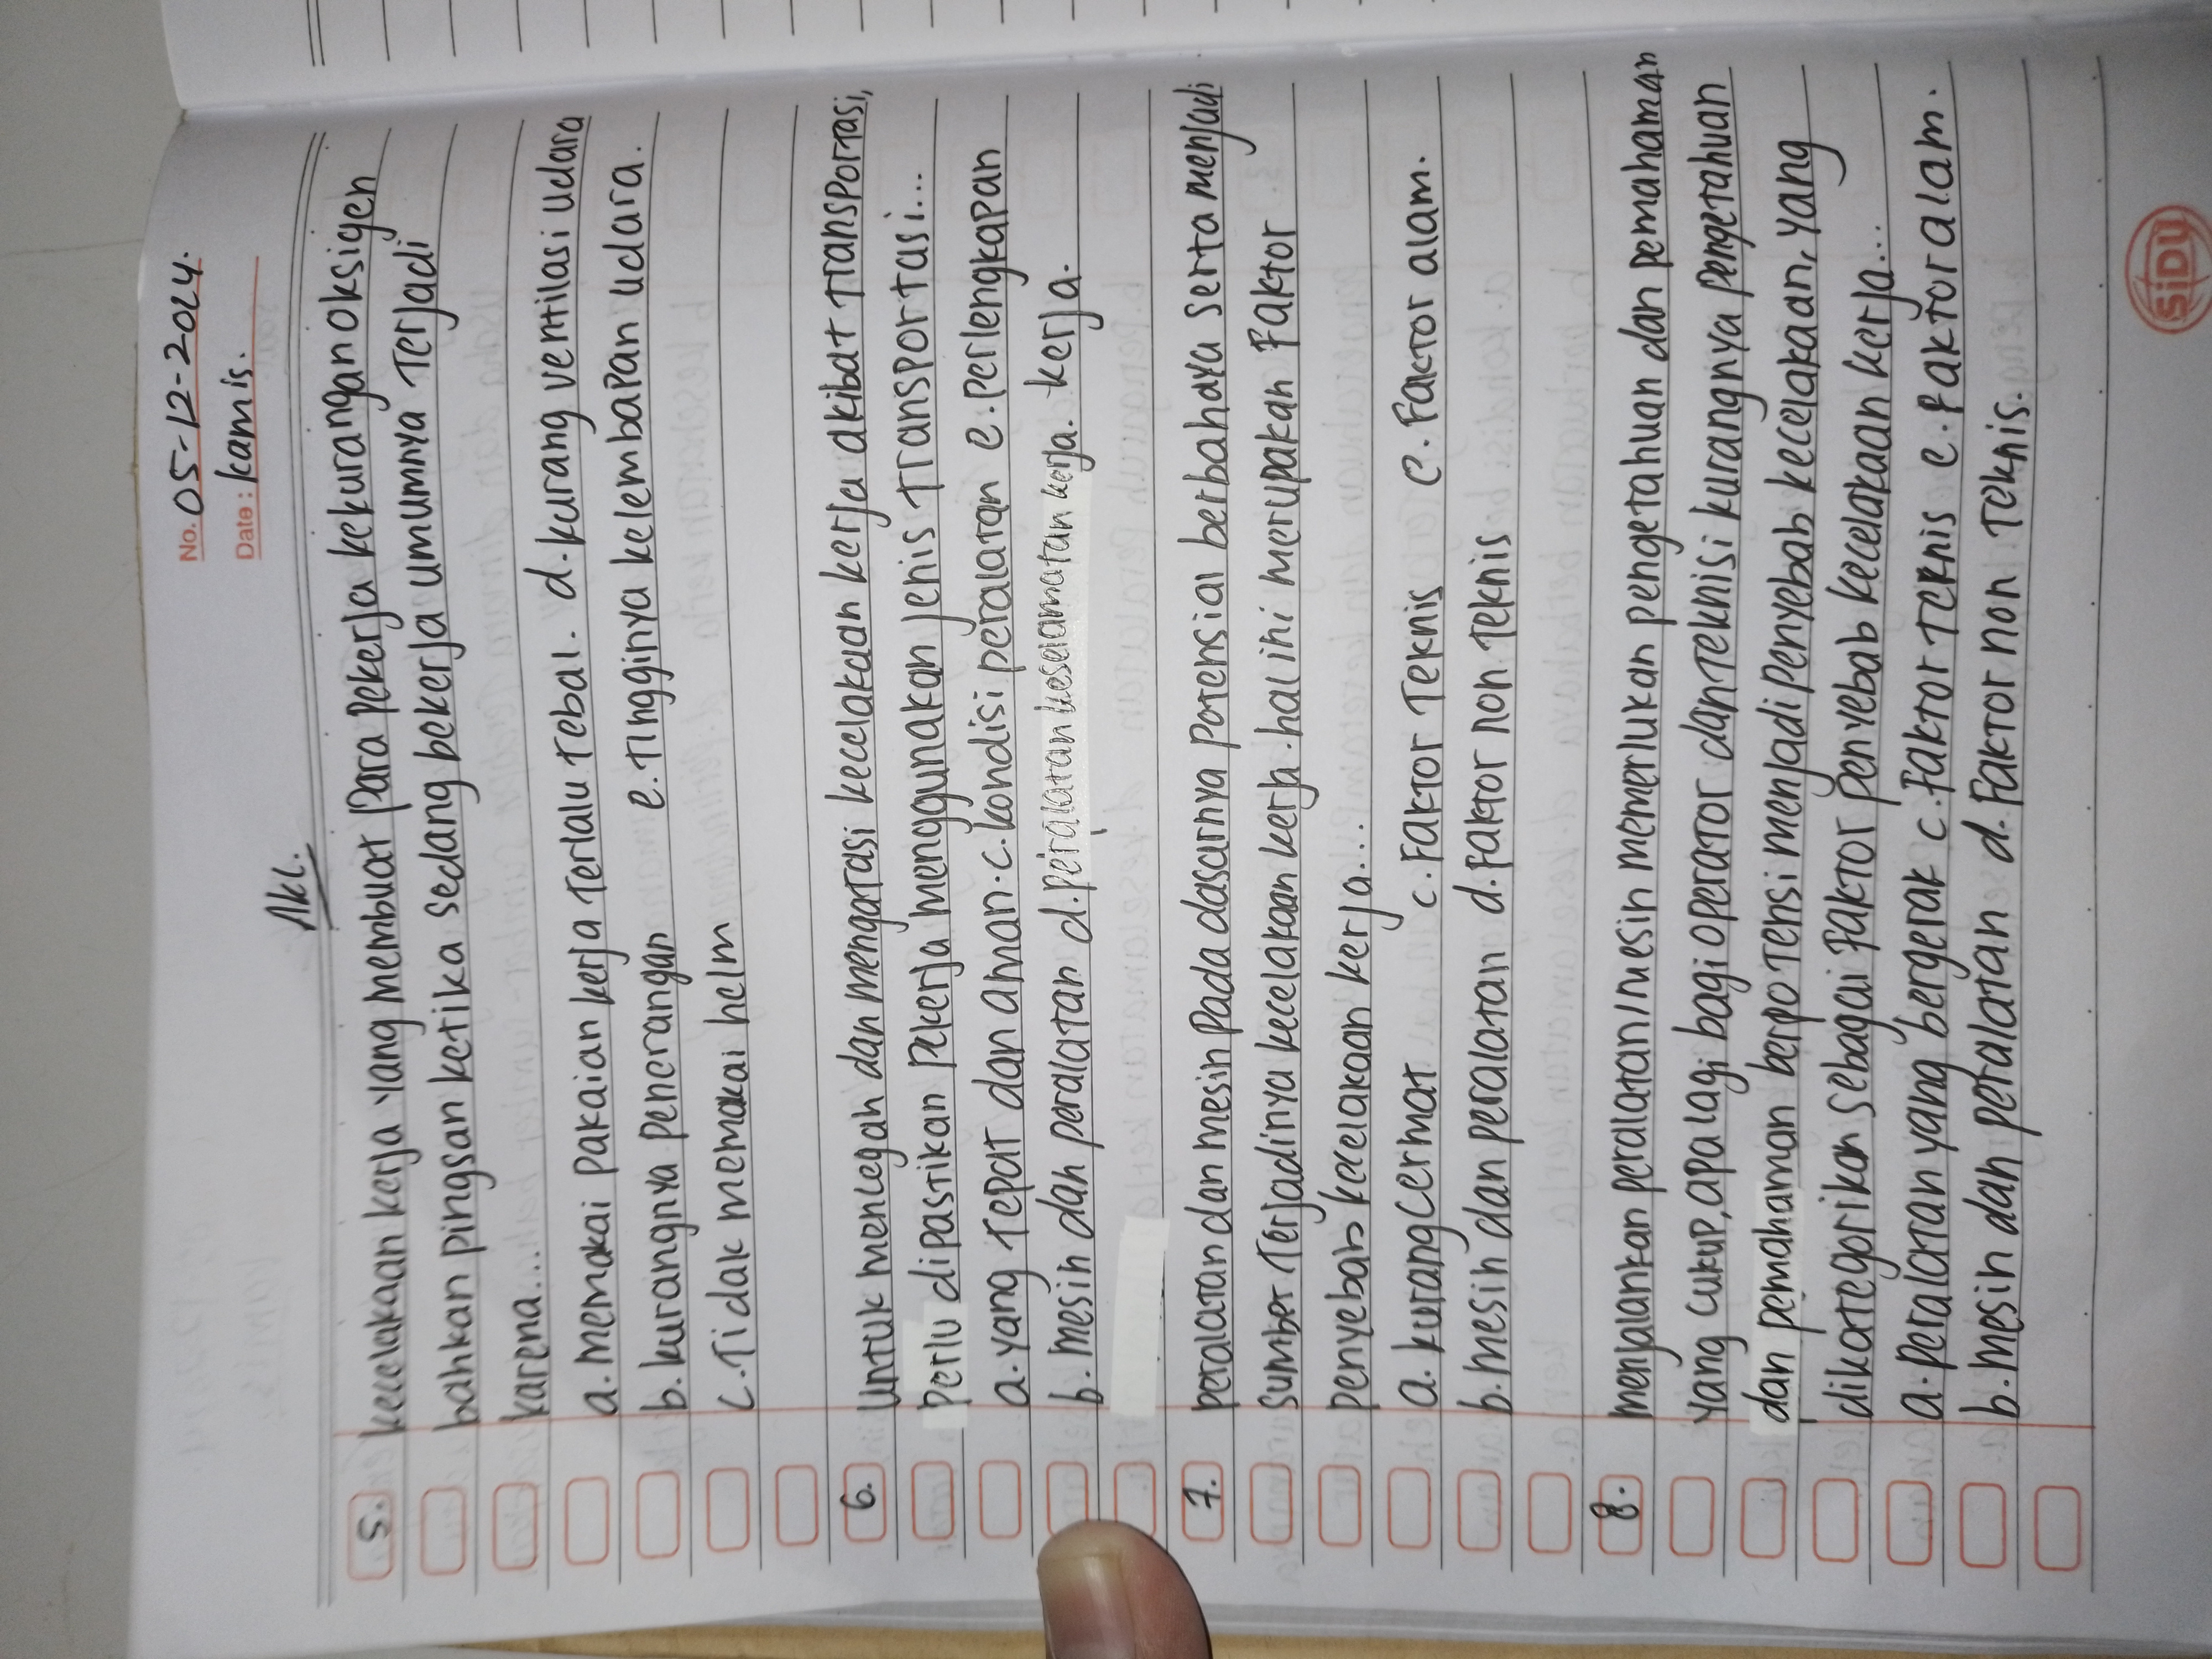 No. 05-12-2024.
Date : kamis.
Akl.
5. kecelakaan kerja yang membuat para pekerja kekurangan oksigen
bahkan pingsan ketika sedang bekerja umumnya terjadi
karena...
a. memakai pakaian kerja terlalu tebal. d. kurang ventilasi udara
b. kurangnya penerangan e. tingginya kelembapan udara.
c. Tidak memakai helm
6. Untuk mencegah dan mengatasi kecelakaan kerja akibat transportasi,
Perlu dipastikan pekerja menggunakan jenis transportasi...
a. yang tepat dan aman. c. kondisi peralatan e. perlengkapan
b. mesin dan peralatan d. peralatan keselamatan kerja. kerja.
7. peralatan dan mesin pada dasarnya potensial berbahaya serta menjadi
sumber terjadinya kecelakaan kerja. hal ini merupakan faktor
penyebab kecelakaan kerja...
a. kurang cermat c. Faktor Teknis e. Faktor alam.
b. mesin dan peralatan d. Faktor non teknis
8. menjalankan peralatan/mesin memerlukan pengetahuan dan pemahaman
yang cukup, apalagi bagi operator dan teknisi kurangnya pengetahuan
dan pemahaman berpotensi menjadi penyebab kecelakaan, yang
dikategorikan sebagai faktor penyebab kecelakaan kerja...
a. peralatan yang bergerak c. faktor teknis e. faktor alam.
b. mesin dan peralatan d. Faktor non Teknis.
SiDU